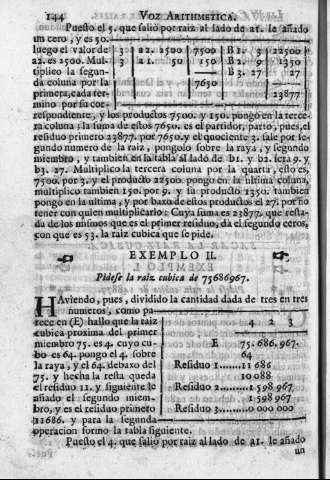 144 VOZ ARITHMETICA.
Puesto el 5. que saliò por raiz al lado de a1. le añado
un cero, y es 50.
luego el valor de
a2. es 2500. Mul-
tiplico la segun-
da coluna por la
primera, cada ter-
mino por su cor-
3 a2. 2500 7500 B1. 3 22500
3 a1. 50 150 B2. 9 1350
B3. 27 27
7650
23877
respondiente, y los productos 7500. y 150. pongo en la terce-
ra coluna: la suma de estos 7650. es el partidor, parto, pues, el
residuo primero 23877. por 7650. y el quociente 3. sale por se-
gundo numero de la raiz, pongolo sobre la raya, y segundo
miembro, y tambien en la tabla al lado de b1. y b2. serà 9. y
b3. 27. Multiplico la tercera coluna por la quarta, esto es,
7500. por 3. y el producto 22500. pongo en la ultima coluna,
multiplico tambien 150. por 9. y su producto 1350. tambien
pongo en la ultima, y por baxo de estos productos el 27. por no
tener con quien multiplicarlo: Cuya suma es 23877. que resta-
da de los mismos que es el primer residuo, dà el segundo ceros,
con que es 53. la raiz cubica que se pide.
EXEMPLO II.
Pidese la raiz cubica de 75686967.
HAviendo, pues, dividido la cantidad dada de tres en tres
numeros, como pa-
rece en (E) hallo que la raiz
cubica proxima del primer
miembro 75. es 4. cuyo cu-
bo es 64. pongo el 4. sobre
la raya, y el 64. debaxo del
75. y hecha la resta queda
el residuo 11. y siguiente le
añado el segundo miem-
bro, y es el residuo primero
11686. y para la segunda
operacion formo la tabla siguiente.
4 2 3
E 75. 686. 967.
64
Residuo 1......11 686
10 088
Residuo 2......1 598 967
1 598 967
Residuo 3......0 000 000
Puesto el 4. que saliò por raiz al lado de A1. le añado
un